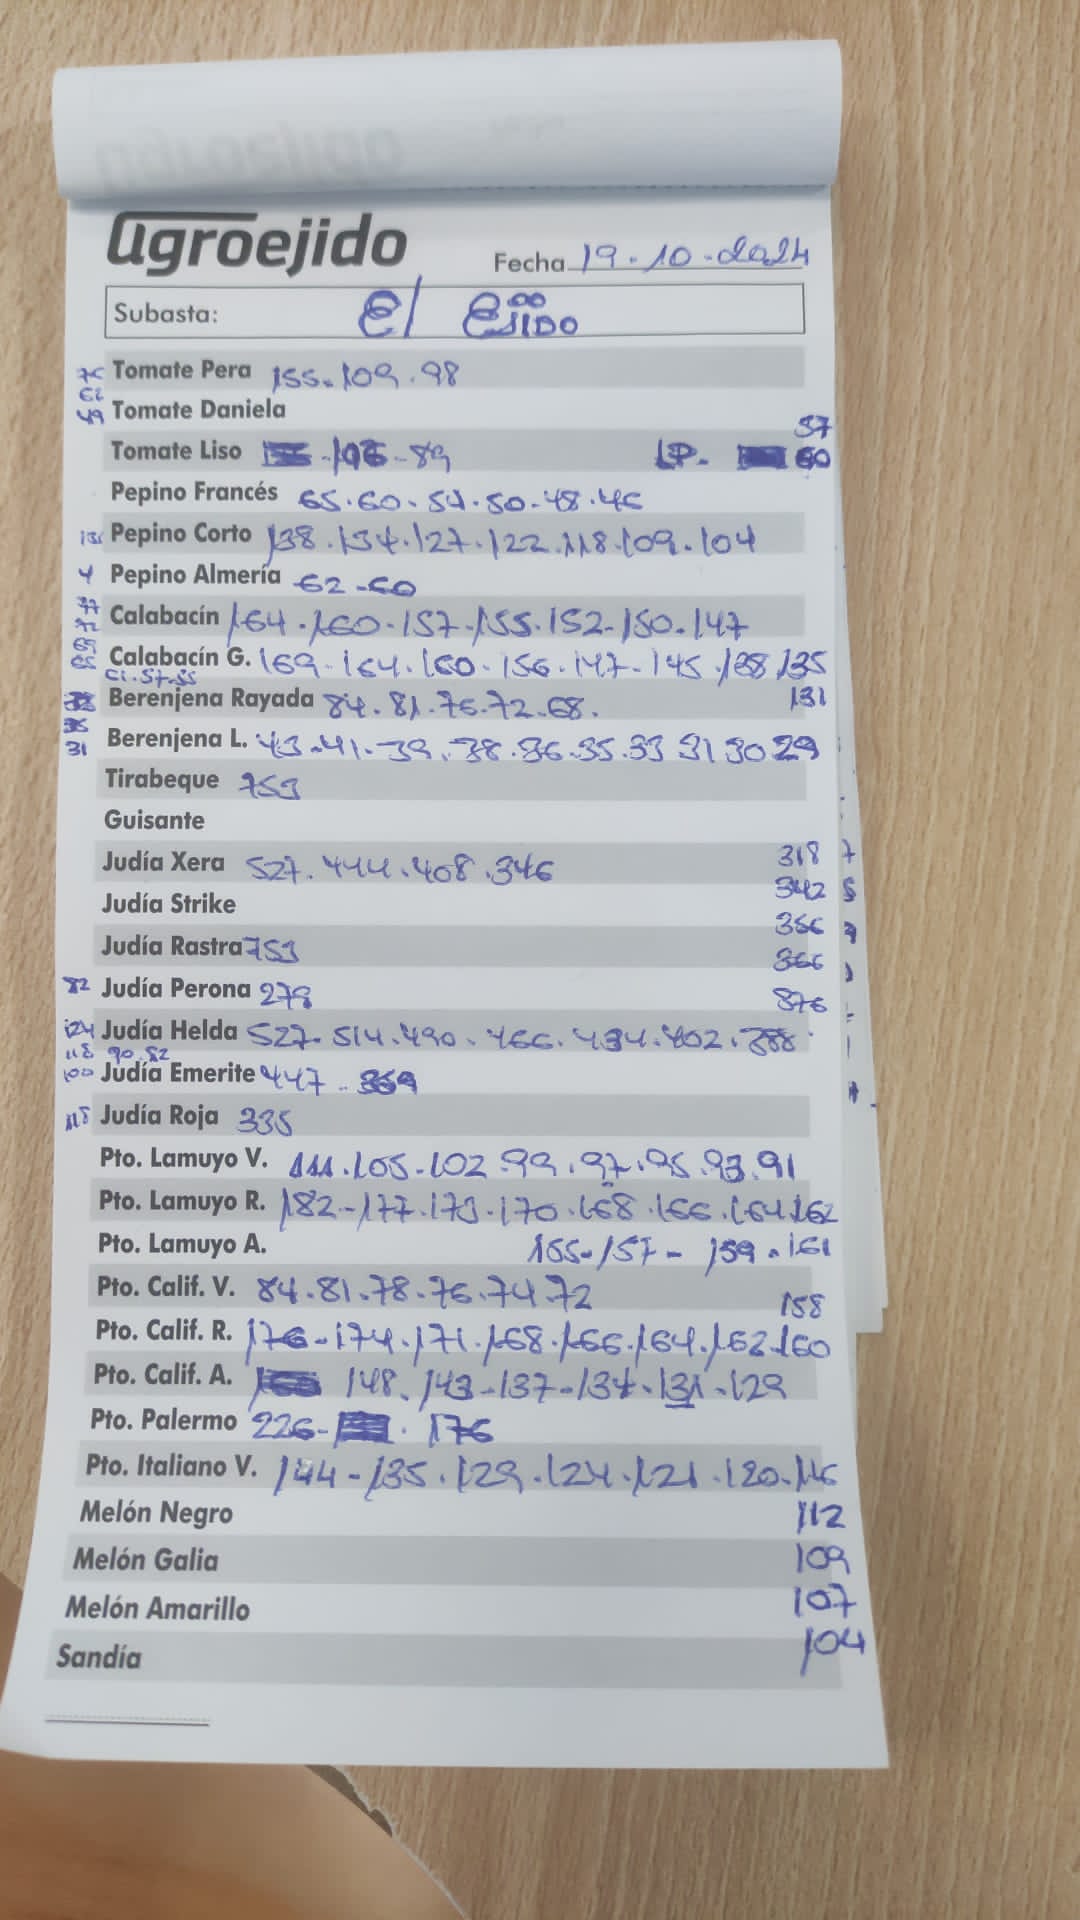 agroejido
Fecha 19.10.2024
Subasta: El Ejido
Tomate Pera 155.109.98
49 Tomate Daniela
57
Tomate Liso -106-89 LP. 60
Pepino Francés 65.60.54.50.48.46
Pepino Corto 138.134.127.122.118.109.104
4 Pepino Almería 62-60
77
72
Calabacín 164.160.157.155.152-150.147
69
65
Calabacín G. 169-164.160.156.147-145.138.135
61.57.55
131
Berenjena Rayada 84.81.76.72.68.
35
31
Berenjena L. 43.41.39.38.36.35.33 31 30 29
Tirabeque 753
Guisante
Judía Xera 527.444.408.346
318
Judía Strike
342
356
Judía Rastra 753
366
82 Judía Perona 279
376
124 Judía Helda 527-514.490.466.434.402.388
118 90.82
100 Judía Emerite 447-369
118 Judía Roja 335
Pto. Lamuyo V. 111.105-102.99.97.95.93.91
Pto. Lamuyo R. 182-177.173-170.168.166.164.162
Pto. Lamuyo A. 155-157-159.161
Pto. Calif. V. 84.81.78.76.74.72
158
Pto. Calif. R. 176-174.171.168.166.164.162.160
Pto. Calif. A. 148.143-137-134.131.129
Pto. Palermo 226-.176
Pto. Italiano V. 144-135.129.124.121.120.116
Melón Negro 112
Melón Galia 109
Melón Amarillo 107
Sandía 104